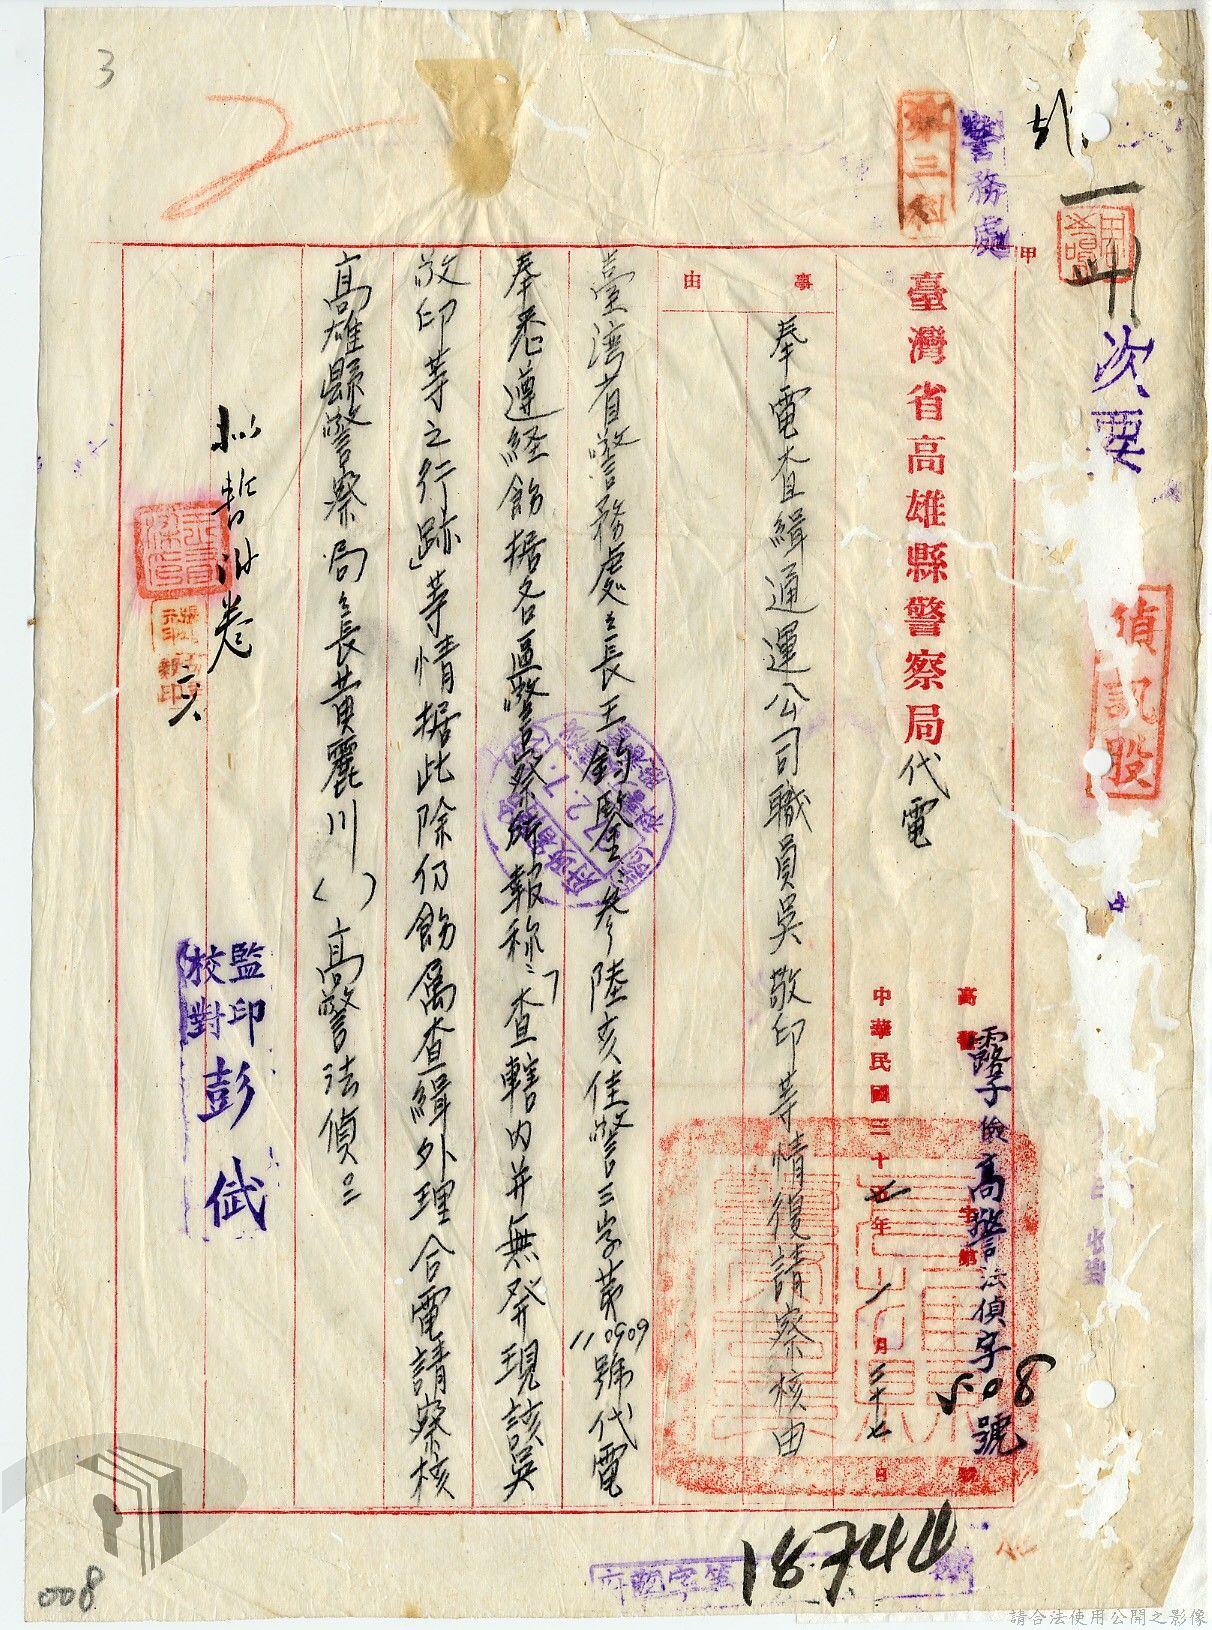 3
第三科
警務處
甲
次要
偵訊股
臺灣省高雄縣警察局代電
高警字第號
露子儉高警法偵字508號
中華民國三十五年一月二十七日
事由
奉電查緝通運公司職員吳敬印等情復請察核由
臺湾省警務處處長王鈞鑒:參陸亥佳警三字第110909號代電
奉悉遵経飭据各區警察所報称:「查轄內并無發現該吳
敬印等之行跡」等情据此除仍飭屬查緝外理合電請察核
高雄縣警察局局長黄麗川( )高警法偵印
拟暫泮卷
監印
校對
彭斌
18744
008
請合法使用公開之影像